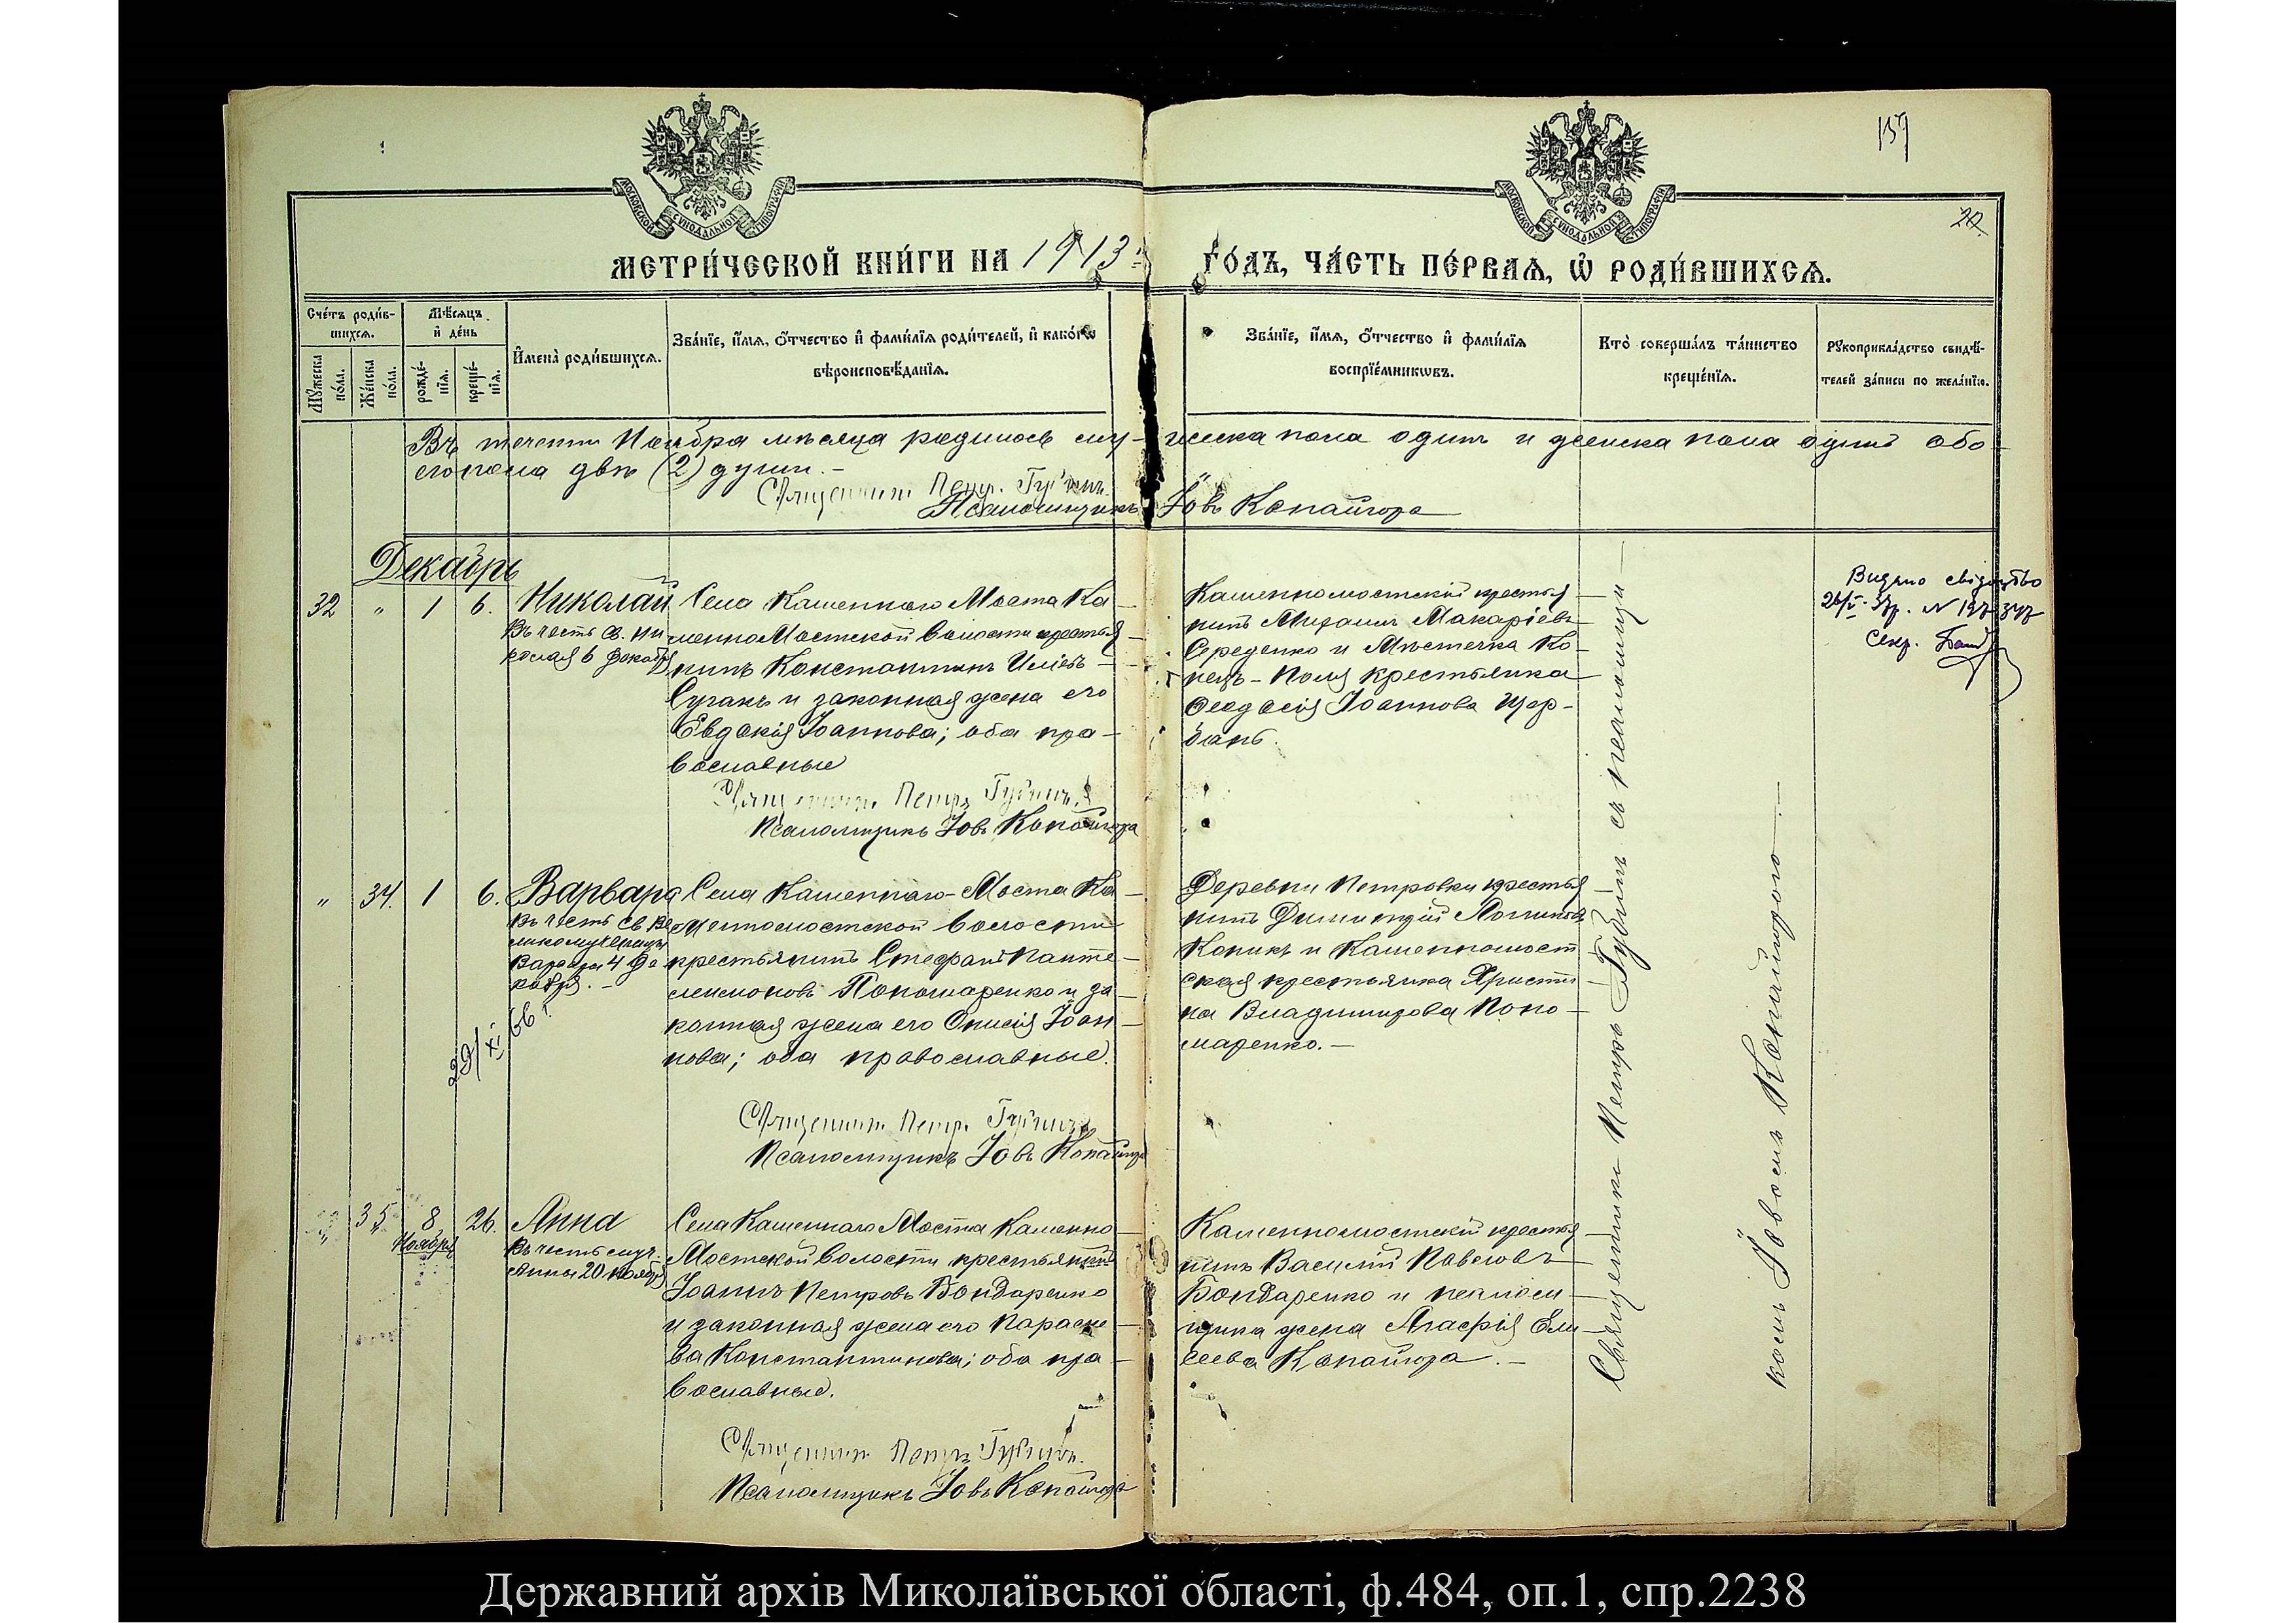 157
20.
МОСКОВСКОЙ СѴНОДАЛЬНОЙ ТИПОГРАФІИ
МОСКОВСКОЙ СѴНОДАЛЬНОЙ ТИПОГРАФІИ
МЕТРИ́ЧЕСКОЙ КНИ́ГИ НА 1913 ГО́ДЪ, ЧА́СТЬ ПЕ́РВАѦ, Ѡ҆ РОДИ́ВШИХСѦ.
Сче́тъ роди́вшихсѧ.
Мꙋ́жеска по́ла.
Же́нска по́ла.
Мѣ́сѧцъ и҆ де́нь
рожде́нїѧ.
креще́нїѧ.
И҆мена̀ роди́вшихсѧ.
Зва́нїе, и҆́мѧ, ѻ҆́тчество и҆ фами́лїѧ роди́телей, и҆ како́гѡ
вѣроисповѣ́данїѧ.
Зва́нїе, и҆́мѧ, ѻ҆́тчество и҆ фами́лїѧ
воспрїе́мникѡвъ.
Кто̀ соверша́лъ та́инство
креще́нїѧ.
Рꙋкоприкла́дство свидѣ́-
телей за́писи по жела́нїю.
Въ течении Ноября месяца родилось му- жеска пола одинъ и женска пола одинъ обо-
его пола двѣ (2) души.-
Священникъ Петръ Губинъ
Псаломщикъ Іовъ Копайгора
Декабрь
32 " 1 6. Николай
Въ честь св. Ни
колая 6 Декабря
Села Каменнаго Моста Ка-
менно Мостской волости крестья-
нинъ Константинъ Иліевъ
Сугакъ и законная жена его
Евдокія Іоаннова; оба пра-
вославные
Священникъ Петръ Губинъ
Псаломщикъ Іовъ Копайгора
Каменномостскій крестья-
нинъ Михаилъ Макаріевъ
Середенко и Мѣстечка Ко-
нецъ-Поля крестьянка
Ѳеодосія Іоаннова Щер-
бань.
Видано свідоцтво
26/V-37р. N 197
Секр.
" 34. 1 6. Варвара
Въ честь св. Ве
ликомученицы
Варвары 4 Де
кабря.-
29/XI 66 г.
Села Каменнаго-Моста Ка-
менномостской волости
крестьянинъ Стефанъ Панте-
леимоновъ Пономаренко и за-
конная жена его Онисія Іоан-
нова; оба православные.
Священникъ Петръ Губинъ
Псаломщикъ Іовъ Копайгора
Деревни Петровки крестья-
нинъ Димитрій Логиновъ
Копикъ и Каменномост
ская крестьянка Христи-
на Владимирова Поно-
маренко.-
" 35 8 26. Анна
Ноября
Въ честь муч.
Анны 20 ноября
Села Каменнаго Моста Каменно-
Мостской волости крестьянинъ
Іоаннъ Петровъ Бондаренко
и законная жена его Параске-
ва Константинова; оба пра-
вославные.
Священникъ Петръ Губинъ.
Псаломщикъ Іовъ Копайгора
Каменномостскій крестья-
нинъ Василій Павловъ
Бондаренко и псалом-
щика жена Агафія Ели-
сеева Копайгора.-
Священникъ Петръ Губинъ съ псаломщи-
комъ Іовомъ Копайгорою.-
Державний архів Миколаївської області, ф.484, оп.1, спр.2238